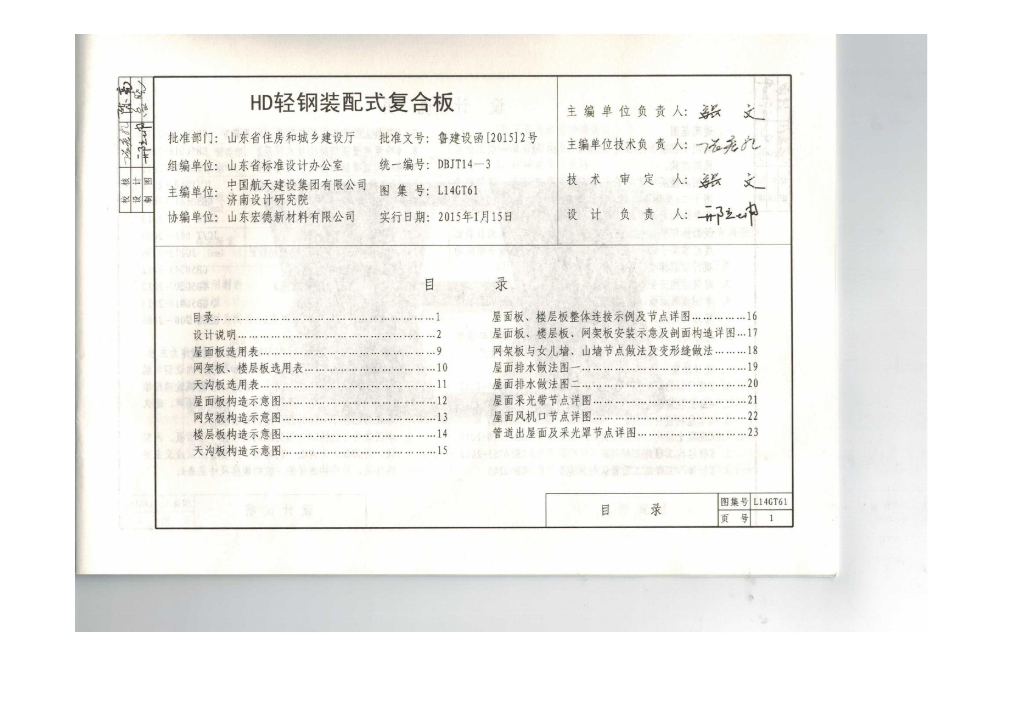 HD轻钢装配式复合板
批准部门: 山东省住房和城乡建设厅 批准文号: 鲁建设函[2015]2号
组编单位: 山东省标准设计办公室 统一编号: DBJT14—3
主编单位: 中国航天建设集团有限公司 济南设计研究院 图 集 号: L14GT61
协编单位: 山东宏德新材料有限公司 实行日期: 2015年1月15日
主 编 单 位 负 责 人: 张 文
主编单位技术负 责 人:
技 术 审 定 人: 张 文
设 计 负 责 人:
校 核
设 计
制 图
目 录
目录……………………………………1
设计说明………………………………2
屋面板选用表…………………………9
网架板、楼层板选用表………………10
天沟板选用表…………………………11
屋面板构造示意图……………………12
网架板构造示意图……………………13
楼层板构造示意图……………………14
天沟板构造示意图……………………15
屋面板、楼层板整体连接示例及节点详图……………16
屋面板、楼层板、网架板安装示意及剖面构造详图…17
网架板与女儿墙、山墙节点做法及变形缝做法………18
屋面排水做法图一………………………………………19
屋面排水做法图二………………………………………20
屋面采光带节点详图……………………………………21
屋面风机口节点详图……………………………………22
管道出屋面及采光罩节点详图…………………………23
目 录
图集号 L14GT61
页 号 1